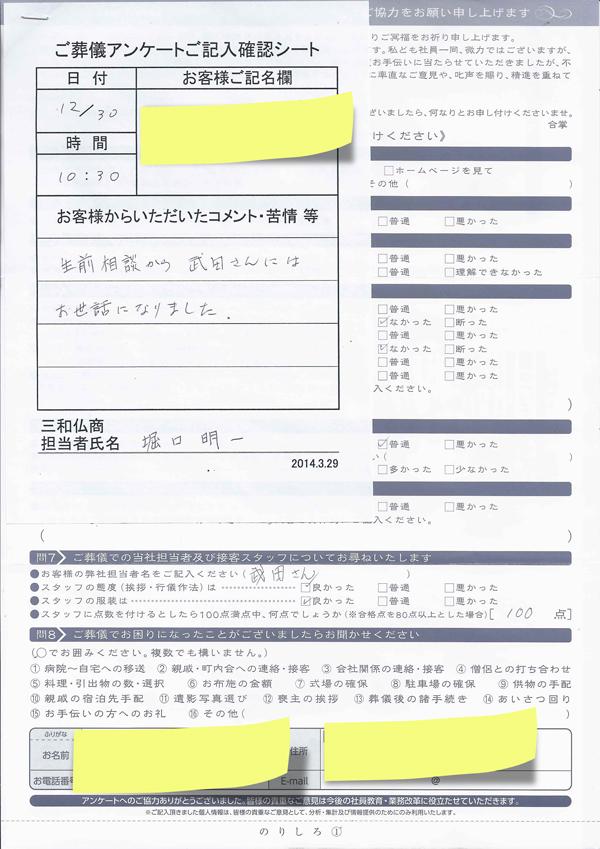 ご葬儀アンケートご記入確認シート
日 付
お客様ご記名欄
12/30
時 間
10:30
お客様からいただいたコメント・苦情 等
生前相談から 武田さんには
お世話になりました.
三和仏商
担当者氏名 堀口明一
2014.3.29
ご協力をお願い申し上げます
りご冥福をお祈り申し上げます。
す。私ども社員一同、微力ではございますが、
お手伝いに当たらせていただきましたが、不
に率直なご意見や、叱声を賜り、精進を重ねて
ざいましたら、何なりとお申し付けくださいませ。
合掌
けください》
□ホームページを見て
その他( )
□普通 □悪かった
□普通 □悪かった
□普通 □理解できなかった
□普通 □悪かった
☑なかった □断った
□普通 □悪かった
☑なかった □断った
□普通 □悪かった
□普通 □悪かった
入ください。
)
☑普通 □悪かった
い( )
□多かった □少なかった
□普通 □悪かった
入ください。
( )
問7 ご葬儀での当社担当者及び接客スタッフについてお尋ねいたします
●お客様の弊社担当者名をご記入ください(武田さん )
●スタッフの態度(挨拶・行儀作法)は ☑良かった □普通 □悪かった
●スタッフの服装は ☑良かった □普通 □悪かった
●スタッフに点数を付けるとしたら100点満点中、何点でしょうか(※合格点を80点以上とした場合)[ 100 点]
問8 ご葬儀でお困りになったことがございましたらお聞かせください
(○でお囲みください。複数でも構いません。)
①病院～自宅への移送 ②親戚・町内会への連絡・接客 ③会社関係の連絡・接客 ④僧侶との打ち合わせ
⑤料理・引出物の数・選択 ⑥お布施の金額 ⑦式場の確保 ⑧駐車場の確保 ⑨供物の手配
⑩親戚の宿泊先手配 ⑪遺影写真選び ⑫喪主の挨拶 ⑬葬儀後の諸手続き ⑭あいさつ回り
⑮お手伝いの方へのお礼 ⑯その他( )
ふりがな
お名前
住所
お電話番号
E-mail @
アンケートへのご協力ありがとうございました。皆様の貴重なご意見は今後の社員教育・業務改革に役立たせていただきます。
※ご記入頂きました個人情報は、皆様の貴重なご意見として、分析・集計及び情報提供のためにのみ利用いたします。
のりしろ①